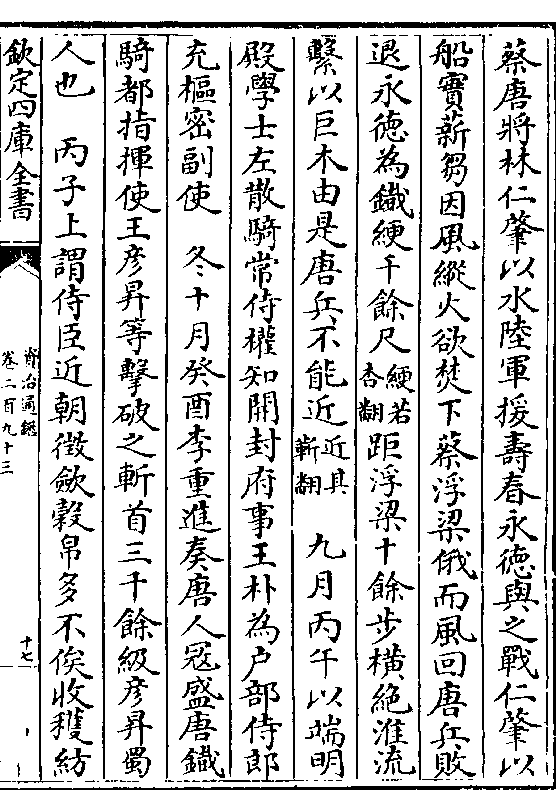 蔡唐將林仁肇以水陸軍援壽春永德與之戰仁肇以
船實薪芻因風縱火欲焚下蔡浮梁俄而風回唐兵敗
退永德為鐵綆千餘尺綆若杏翻距浮梁十餘步橫絶淮流
繫以巨木由是唐兵不能近近其靳翻　九月丙午以端明
殿學士左散騎常侍權知開封府事王朴為户部侍郎
充樞密副使　冬十月癸酉李重進奏唐人寇盛唐鐵
騎都指揮使王彦昇等擊破之斬首三千餘級彦昇蜀
人也　丙子上謂侍臣近朝徵歛穀帛多不俟收穫紡
欽定四庫全書
資治通鑑
卷二百九十三
十七